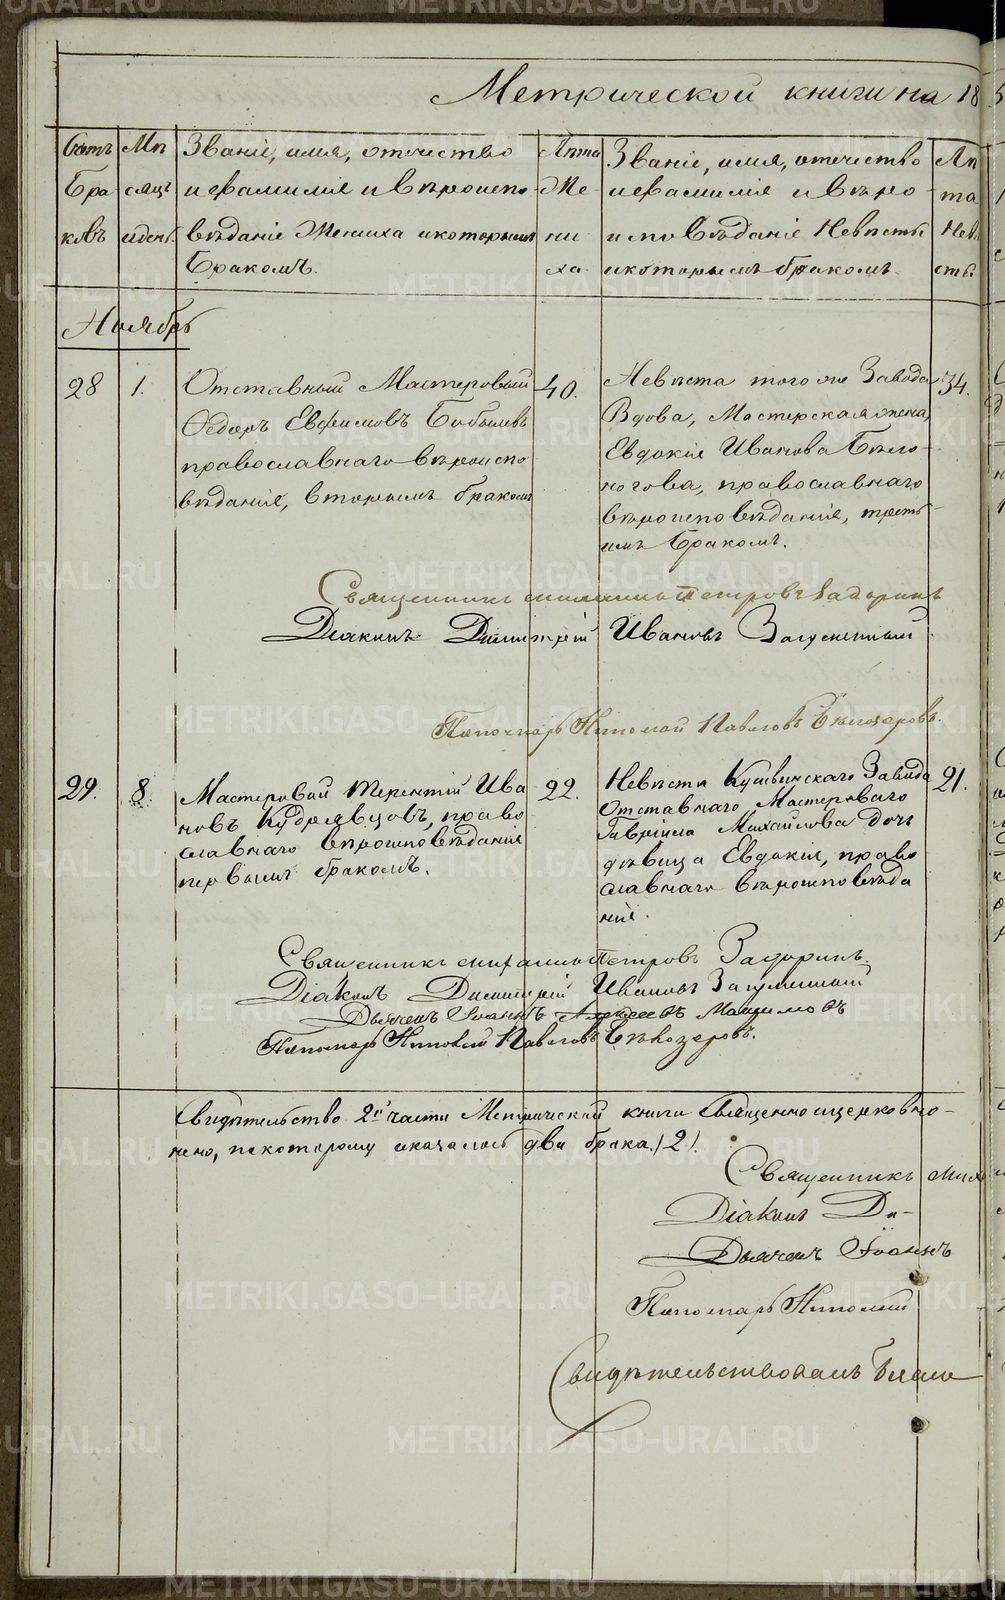 Метрической книги на 18
Счетъ
Бра
ковъ
Мѣ
сяцъ
и день.
Званіе, имя, отечество
и фамилія и вѣроиспо
вѣданіе Жениха и которымъ
Бракомъ.
Лѣта
Же
ни
ха.
Званіе, имя, отечество
и фамилія и вѣро
исповѣданіе Невѣсты
и которымъ бракомъ.
Лѣ
та
Невѣ
сты.
Ноябрь
28
1.
Отставный Мастеровый
Ѳедоръ Евфимовъ Бобылевъ
православнаго вѣроиспо
вѣданія, вторымъ бракомъ
40.
Невѣста того же Завода
Вдова, Мастерская жена,
Евдокія Иванова Бѣло-
ногова, православнаго
вѣроисповѣданія, треть-
имъ Бракомъ.
34.
Священникъ Петровъ Задоринъ
Діаконъ Димитрій Ивановъ Загуменный
Пономарь Николай Павловъ Бѣлозеровъ.
29.
8.
Мастеровый Терентій Ива
новъ Кудрявцовъ, право
славнаго вѣроисповѣданія
первымъ бракомъ.
22.
Невѣста Кушвинскаго Завода
Отставнаго Мастероваго
Гавріила Михайлова дочь
дѣвица Евдокія, право
славнаго вѣроисповѣда
нія.
21.
Священникъ Петровъ Задоринъ.
Діаконъ Димитрій Ивановъ Загуменный
Дьячекъ Іоаннъ Максимовъ
Пономарь Николай Павловъ Бѣлозеровъ.
Свидѣтельство 2й части Метрической книги Священноцерковно-
по которому оказалось два брака /2/.
Священникъ
Діаконъ Ди-
Дьячекъ Іоаннъ
Пономарь Николай
Свидѣтельствовалъ Благо
METRIKI.GASO-URAL.RU